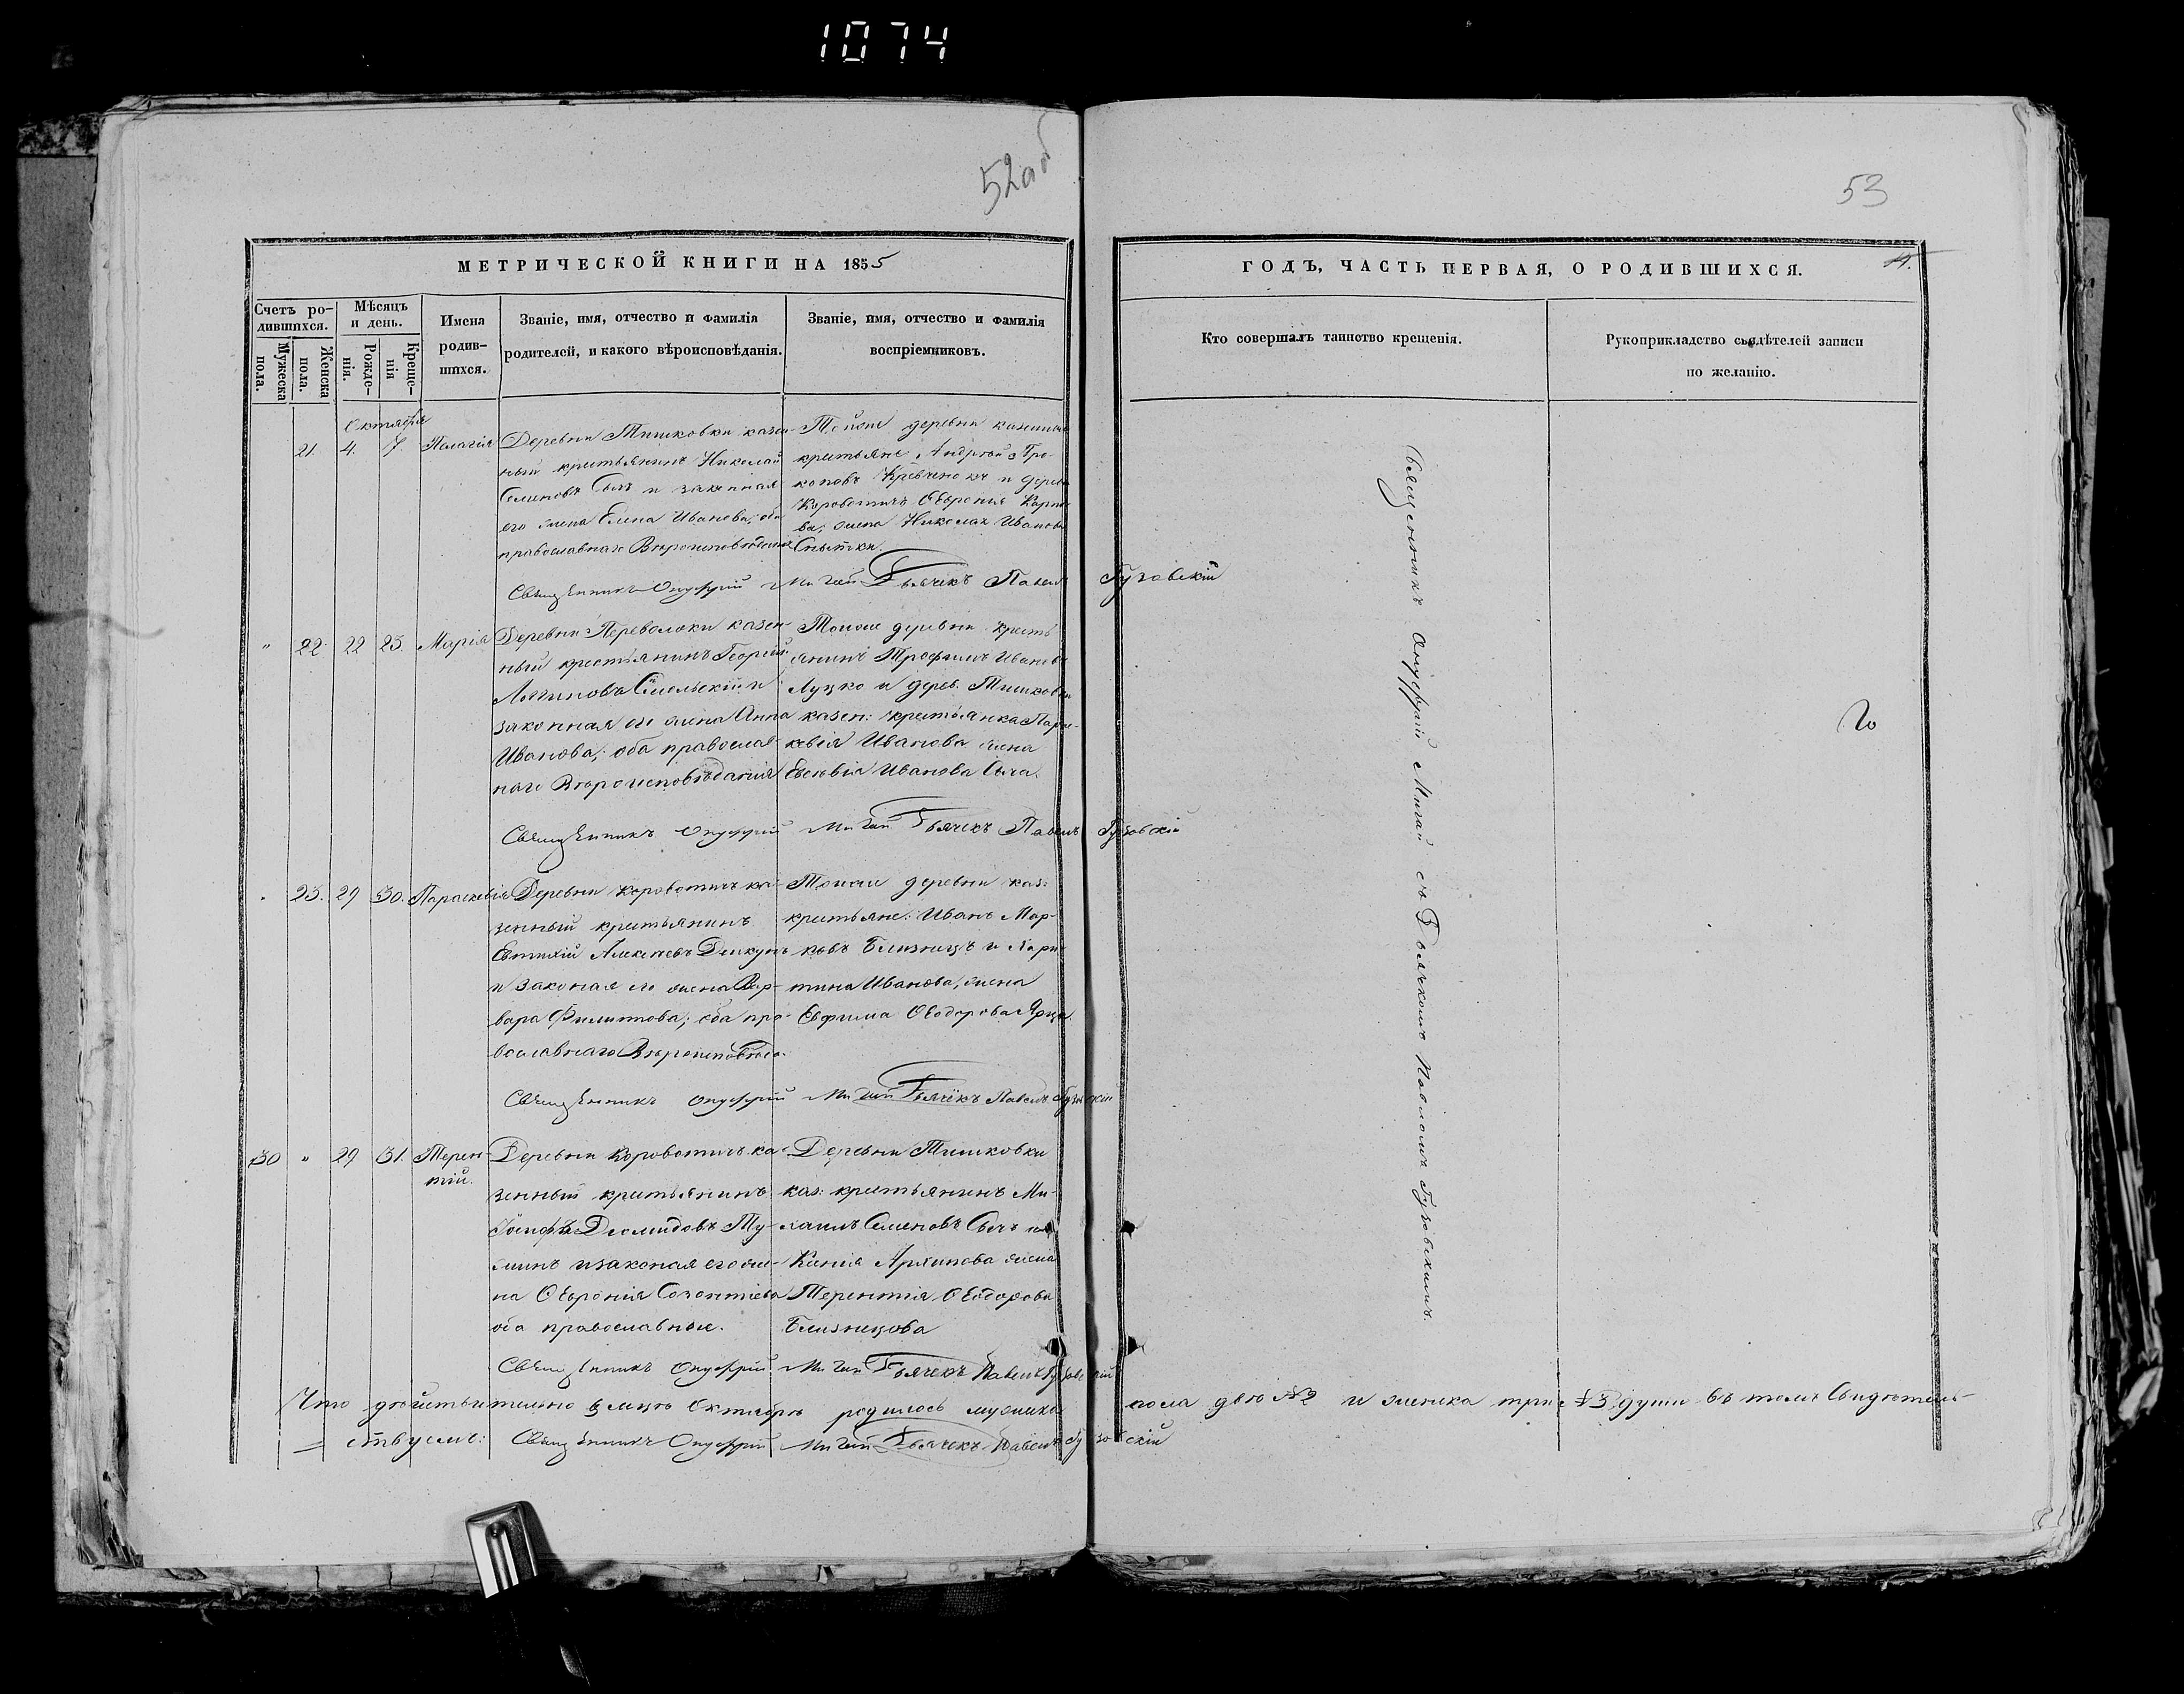 1074
52 об
53
МЕТРИЧЕСКОЙ КНИГИ НА 1855
ГОДЪ, ЧАСТЬ ПЕРВАЯ, О РОДИВШИХСЯ.
Счетъ родившихся.
Мужеска пола.
Женска пола.
Мѣсяцъ и день.
Рожденія.
Крещенія
Имена родившихся.
Званіе, имя, отчество и фамилія
родителей, и какого вѣроисповѣданія.
Званіе, имя, отчество и фамилія
воспріемниковъ.
Кто совершалъ таинство крещенія.
Рукоприкладство свидѣтелей записи
по желанію.
Октября
21. 4. 7. Пелагія
Деревни Тишковки казен-
ный крестьянинъ Николай
Семеновъ Сычъ и законная
его жена Елена Иванова; оба
православнаго Вѣроисповѣданія
Тойже деревни казенные
крестьяне Андрей Про-
коповъ и дерев.
Коровотичъ Февронія Карпо-
ва, жена Николая Иванова
Снытки.
Священникъ Онуфрій Мигай Дьячекъ Павелъ Гузовскій
" 22. 22 23. Марія
Деревни Переволоки казен-
ный крестьянинъ Георгій
Логиновъ и
законная его жена Анна
Иванова; оба православ-
наго Вѣроисповѣданія
Тойже деревни кресть-
янинъ Трофимъ Ивановъ
Луцко и дерев. Тишковки
казен: крестьянка Парас-
кевія Иванова жена
Евсевія Иванова Сыча.
Священникъ Онуфрій Мигай Дьячекъ Павелъ Гузовскій
23. 29 30. Параскевія
Деревни Коровотичъ ка-
зенный крестьянинъ
Евтихій Алексеевъ
и законая его жена Вар-
вара Филиппова; оба пра-
вославнаго Вѣроисповѣда.
Тойже деревни каз:
крестьяне: Иванъ Мар-
ковъ Близнецъ и Хари-
тина Иванова, жена
Евфима Ѳеодорова
Священникъ Онуфрій Мигай Дьячекъ Павелъ Гузовскій
30 " 29 31. Терен-
тій.
Деревни Коровотичъ ка-
зенный крестьянинъ
Іосифъ Діомидовъ Ту-
и законая его же-
на Февронія Созонтіева
оба православные.
Деревни Тишковки
каз: крестьянинъ Ми-
хаилъ Семеновъ Сычъ и
Ксенія Архипова жена
Терентія Ѳеодорова
Близнецова
Священникъ Онуфрій Мигай Дьячекъ Павелъ Гузовскій
Что дѣйствительно в мцѣ Октябрѣ родилось мужеска пола двѣ № 2 и женска три № 3 души въ томъ Свидѣтель-
ствуемъ: Священникъ Онуфрій Мигай Дьячекъ Павелъ Гузовскій
Священникъ Онуфрій Мигай съ Дьячкомъ Павломъ Гузовскимъ.